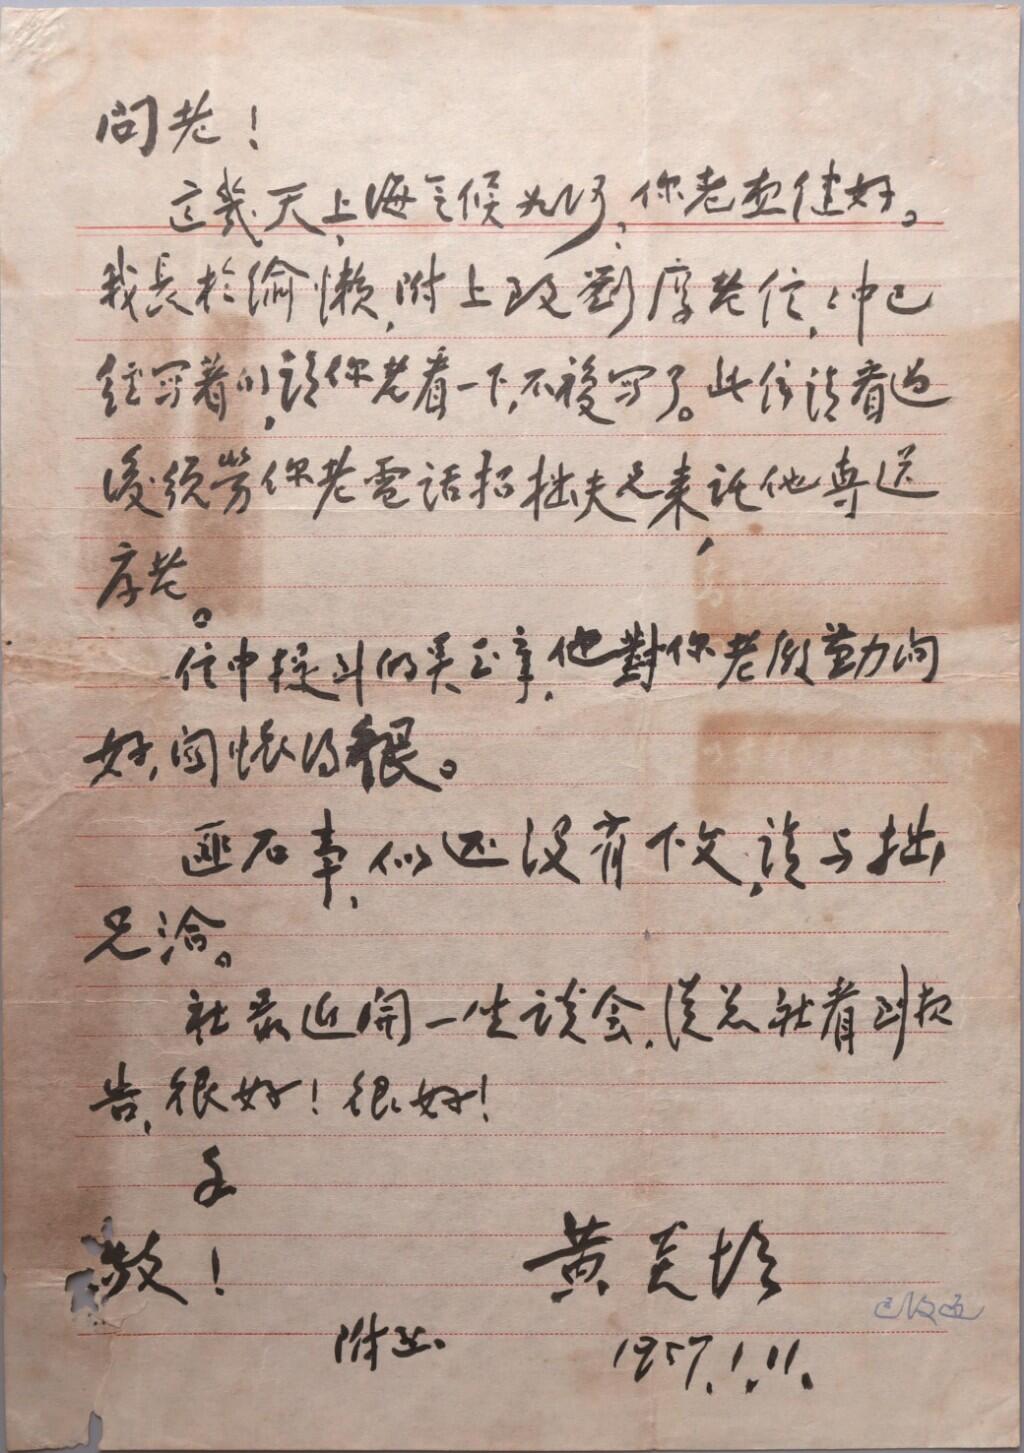 问老！
这幾天上海气候如何？你老想健好。
我長於偷懒，附上致劉厚老信，々中已
经写着的，請你老看一下，不複写了。此信請看过
後須劳你老電话招拙夫兄来，託他專送
厚老。
信中提到的吴玉章，他對你老殷勤问
好，関怀得很。
匪石事，似还没有下文，請与拙
兄洽。
社最近開一坐谈会，後就看到报
告，很好！很好！
致
敬！
黄炎培
附函。
1957.1.11.